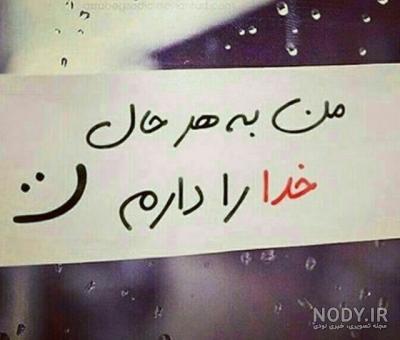 من به هر حال
خدا را دارم
NODY.IR
مجله تصویری، خبری نودی